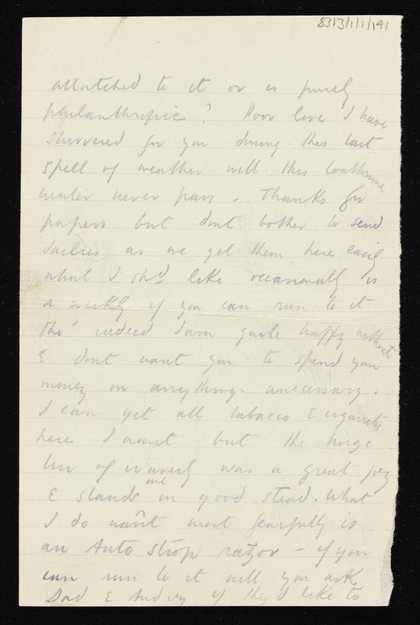 8313/1/1/141
attatched to it or is purely
philanthropic? Poor love I have
shivered for you during this last
spell of weather will this loathsome
winter never pass. Thanks for
papers but dont bother to send
dailies as we get them here easily
what I shd like occasionally is
a weekly if you can run to it
tho' indeed I am quite happy without
& dont want you to spend your
money on anything unecessary.
I can get all tobacco & cigarettes
here I want but the huge
tin of waverly was a great joy
& stands me in good stead. What
I do want most fearfully is
an Auto Strop razor – if you
can run to it will you ask
Dad & Audrey if they'd like to